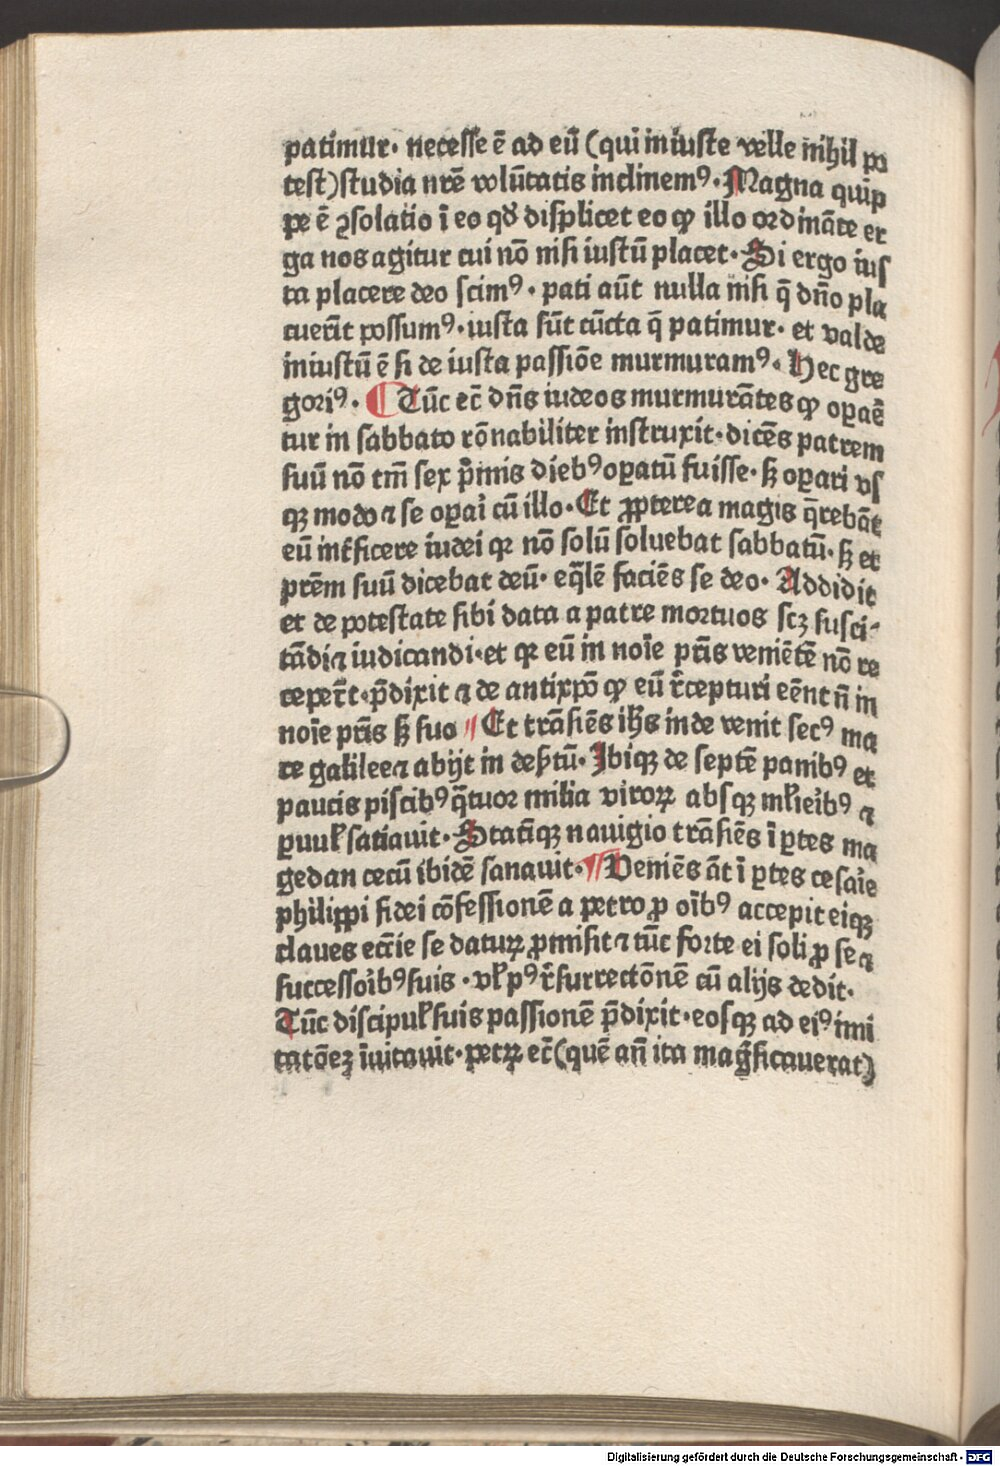 patimur· necesse ē ad eū (qui iniuste velle nihil po
test)studia nr̄e volūtatis inclinemꝰ· Magna quip
pe ē ꝯsolatio ī eo qd̛ displicet eo ꝙ illo ordināte er
ga nos agitur cui nō nisi iustū placet· Si ergo ius
ta placere deo scimꝰ· pati aūt nulla nisi q̄ dn̄o pla
cuerīt possumꝰ· iusta sūt cūcta q̄ patimur· et valde
iniustū ē si de iusta passiōe murmuramꝰ· Hec gre
goriꝰ· Tūc ec̄ dn̄s iudeos murmurātes ꝙ oꝑaē
tur in sabbato rōnabiliter instruxit· dicēs patrem
suū nō tm̄ sex p̄mis diebꝰ oꝑatū fuisse· sꝫ oꝑari vs
qꝫ modo ⁊ se oꝑai cū illo· Et ꝓpterea magis q̄rebāt
eū int̄ficere iudei qꝛ nō solū soluebat sabbatū· sꝫ et
pr̄em suū dicebat deū· eq̄lē faciēs se deo· Addidit
et de potestate sibi data a patre mortuos scꝫ susci⸗
tādi ⁊ iudicandi· et qꝛ eū in noīe pr̄is veniētē nō re
ceper̄t· p̄dixit ⁊ de antixp̄o ꝙ eū r̄cepturi eēnt n̄ in
noīe pr̄is sꝫ suo Et trāsiēs ih̄s inde venit secꝰ ma
re galilee ⁊ abijt in deẜtū· Ibiqꝫ de septē panibꝰ et
paucis piscibꝰ q̄tuor milia viroꝝ absqꝫ ml̛ieībꝰ ⁊
ꝑuul̛ satiauit· Statīqꝫ nauigio trāsiēs ī ꝑtes ma
gedan cecū ibidē sanauit· Veniēs āt ī ꝑtes cesaīe
philippi fidei cōfessionē a petro ꝓ oībꝰ accepit eiqꝫ
claues ecc̄ie se datuꝝ ꝓmisit ⁊ tūc forte ei soli ꝓ se ⁊
successoībꝰ suis · vl̛ pꝰ r̄surrectōnē cū alijs dedit·
Tūc discipul̛ suis passionē p̄dixit· eosqꝫ ad eiꝰ imi
tatōeꝫ īuitauit· petꝝ ec̄ (quē an̄ ita maḡficauerat)
Digitalisierung gefördert durch die Deutsche Forschungsgemeinschaft · DFG